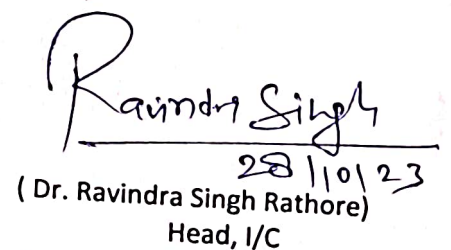 Ravindra Singh
28/10/23
( Dr. Ravindra Singh Rathore)
Head, I/C